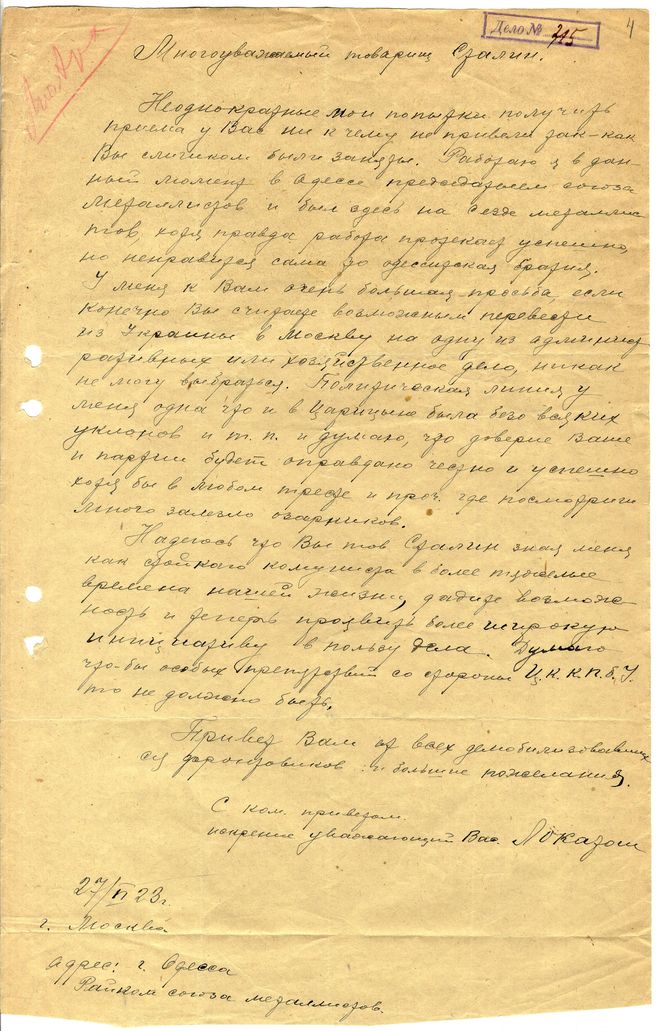 Дело № 215
4
Многоуважаемый товарищ Сталин.
Неоднократные мои попытки получить
приема у Вас ни к чему не привели так-как
Вы слишком были заняты. Работаю я в дан-
ный момент в Одессе председателем союза
Металлистов и был здесь на с'езде металлис
тов, хотя правда работа протекает успешно,
но ненравится сама то одесситская братия.
У меня к Вам очень большая просьба, если
конечно Вы считаете возможным перевести
из Украины в Москву на одну из админист
ративных или хозяйственное дело, никак
не могу выбраться. Политическая линия у
меня одна что и в Царицыне была безо всяких
уклонов и т. п. и думаю, что доверие Ваше
и партии будет оправдано честно и успешно
хотя бы в любом тресте и проч. где посмотрите
много залезло
Надеюсь что Вы тов Сталин зная меня
как стойкого комуниста в более тяжелые
времена нашей жизни, дадите возмож-
ность и теперь проявить более широкую
инициативу в пользу дела. Думаю
что-бы особых препятствий со стороны Ц.К.К.П.б.У.
то не должно быть.
Привет Вам от всех демобилизовавших
ся фронтовиков и большие пожелания.
С ком. приветом.
искренне уважающий Вас.
27/IV 23 г.
г. Москва
адрес: г. Одесса
Райком союза металлистов.